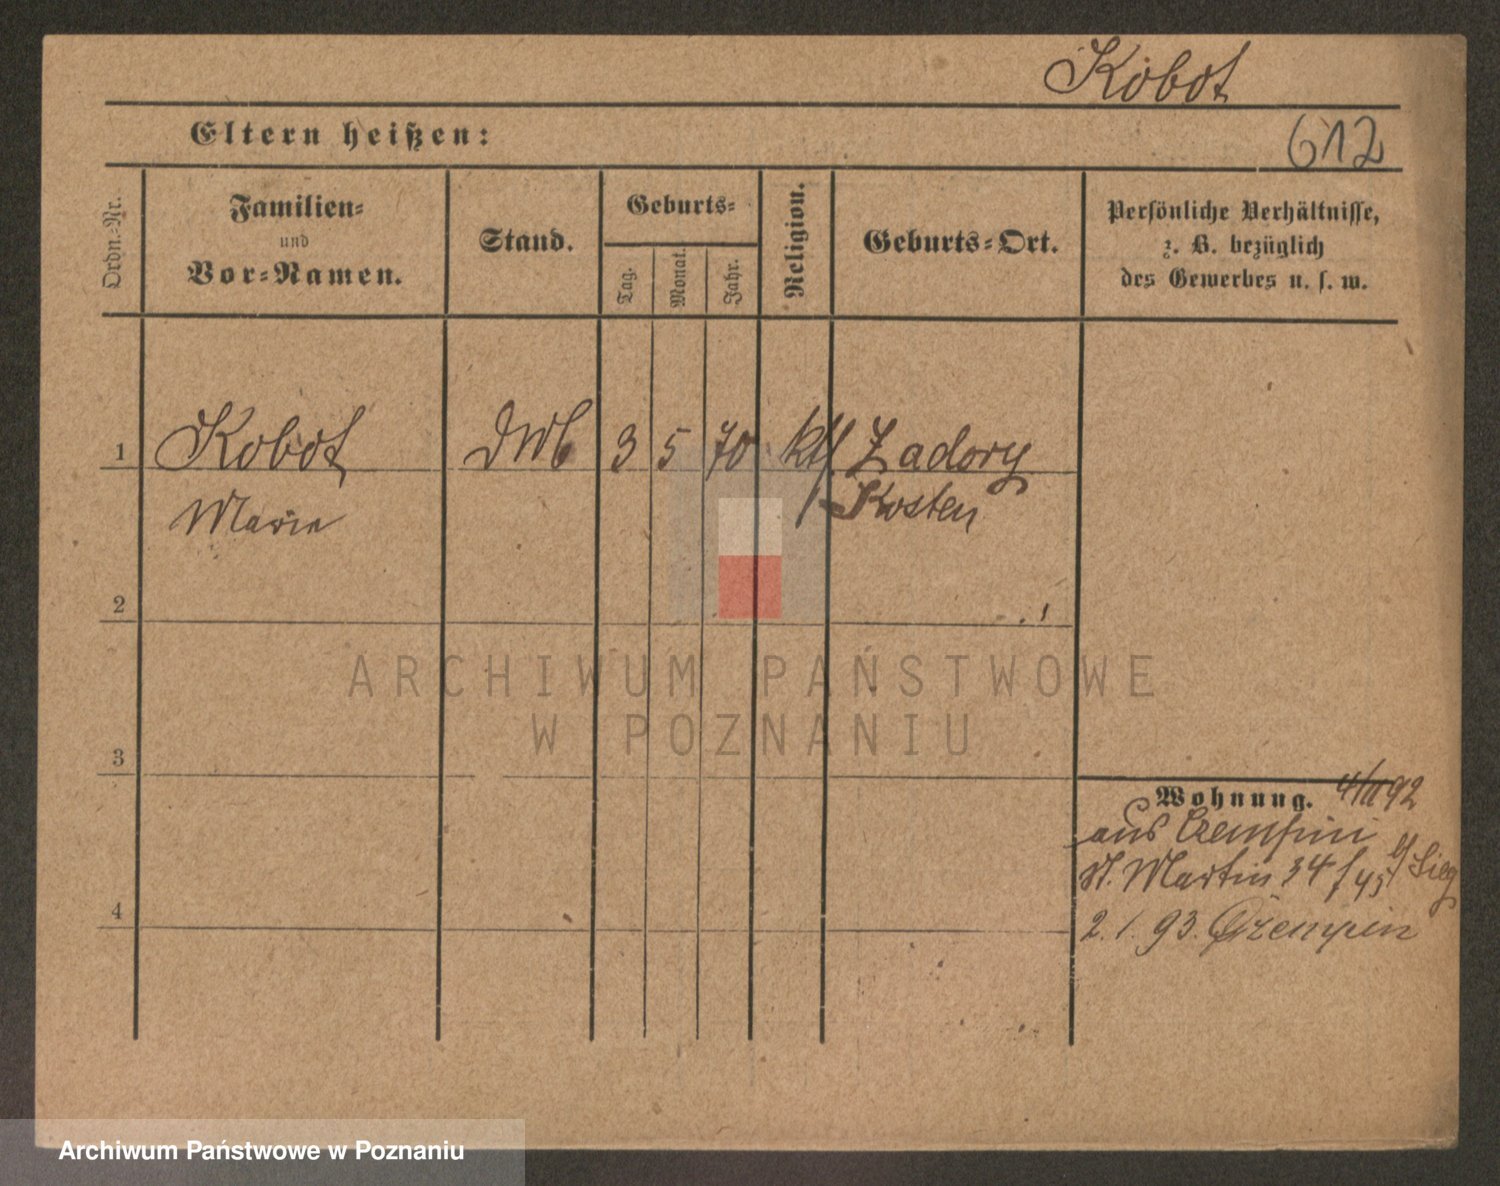 Kobot
Eltern heißen:
612
Ordn.-Nr.
Familien-
und
Vor-Namen.
Stand.
Geburts-
Tag.
Monat.
Jahr.
Religion.
Geburts-Ort.
Persönliche Verhältnisse,
z. B. bezüglich
des Gewerbes u. s. w.
1 Kobot 3 5 70 kth Zadory
Marie Kosten
2
ARCHIWUM PAŃSTWOWE
W POZNANIU
3
Wohnung. 92
aus
St. Martin 34
4
2. 1. 93. Czempin
Archiwum Państwowe w Poznaniu